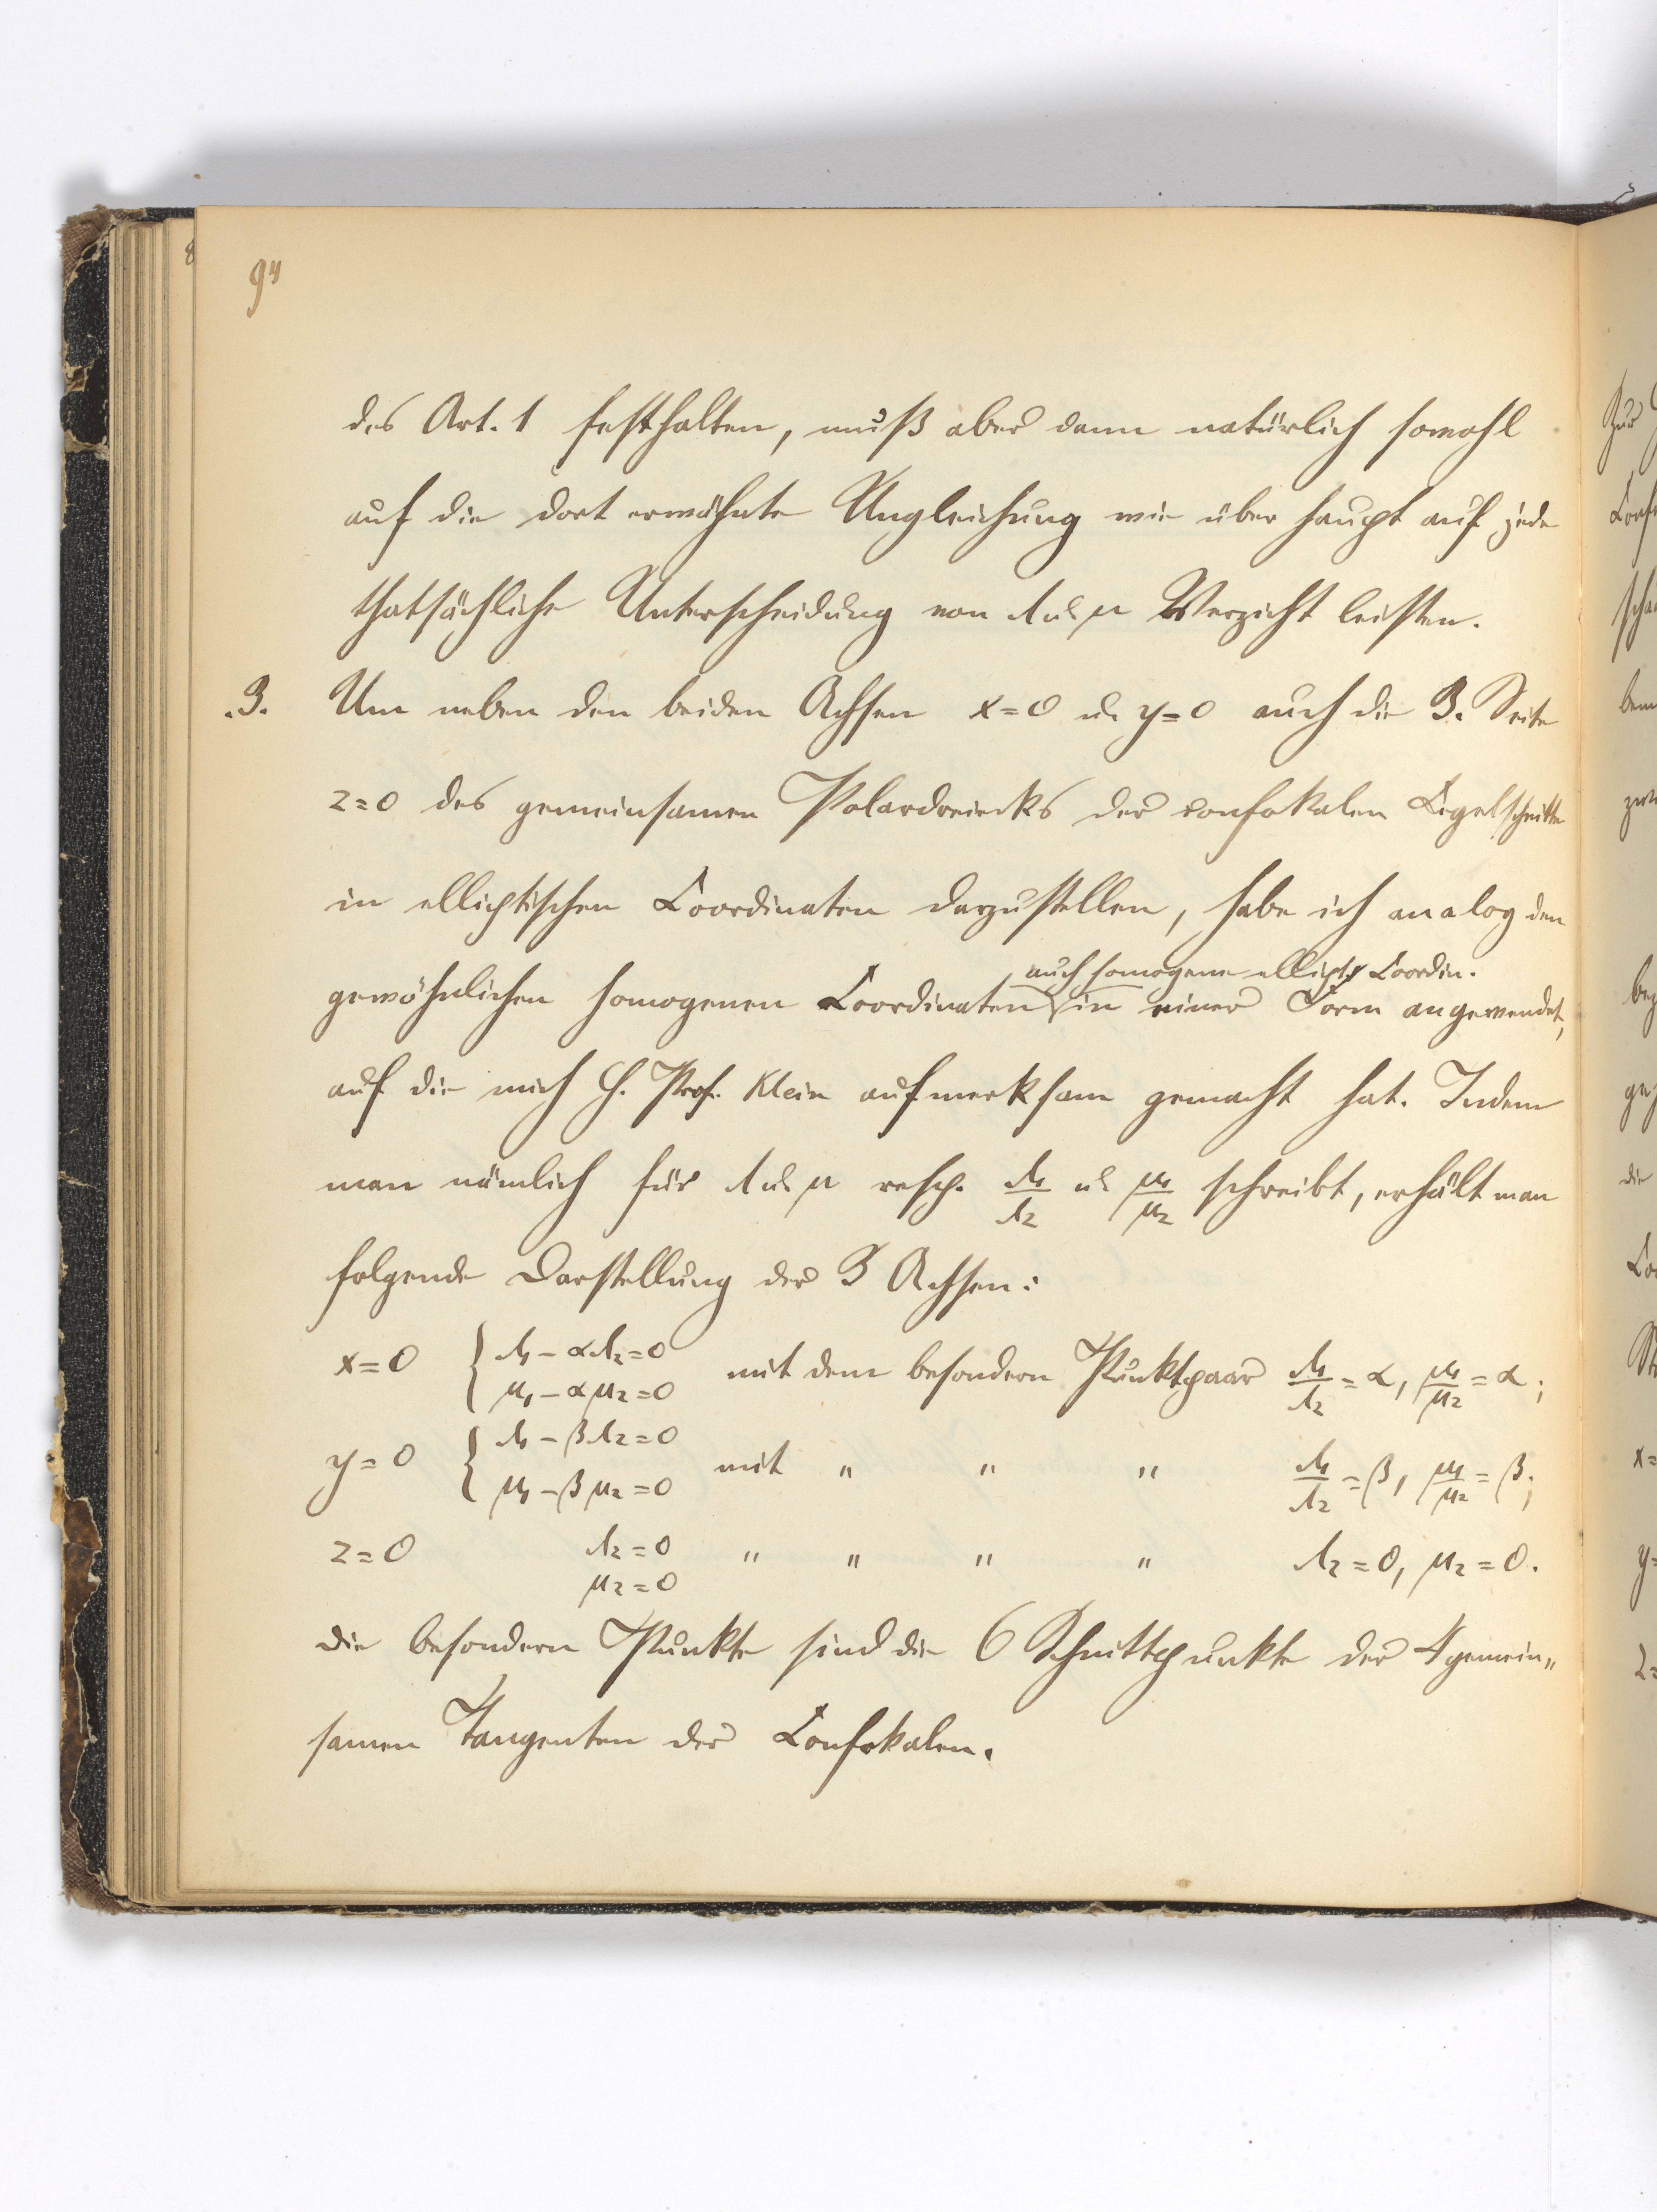 94
des Art. 1 festhalten, muß aber dann natürlich sowohl
auf die dort erwähnte Ungleichung wie über haupt auf jede
thatsächliche Unterscheidung von λ u. μ Verzicht leisten.
3. Um neben den beiden Achsen x=0 u. y=0 auch die 3. Seite
z=0 des gemeinsamen Polardreiecks der confokalen Kegelschnitte
in elliptischen Coordinaten darzustellen, habe ich analog den
auch homogene ellipt. Coordin.
gewöhnlichen homogenen Coordinaten in einer Form angewendet,
auf die mich H. Prof. Klein aufmerksam gemacht hat. Indem
man nämlich für λ u. μ resp. λ₁/λ₂ u. μ₁/μ₂ schreibt, erhält man
folgende Darstellung der 3 Achsen:
x=0 { λ₁ - αλ₂=0 μ₁ - αμ₂=0 mit dem besondern Punktpaar λ₁/λ₂ = α, μ₁/μ₂ = α;
y=0 { λ₁ - βλ₂=0 μ₁ - βμ₂=0 mit " " " λ₁/λ₂ = β, μ₁/μ₂ = β;
z=0 λ₂=0 μ₂=0 " " " " λ₂=0, μ₂=0.
die besondern Punkte sind die 6 Schnittpunkte der 4 gemein„
samen Tangenten der Confokalen.